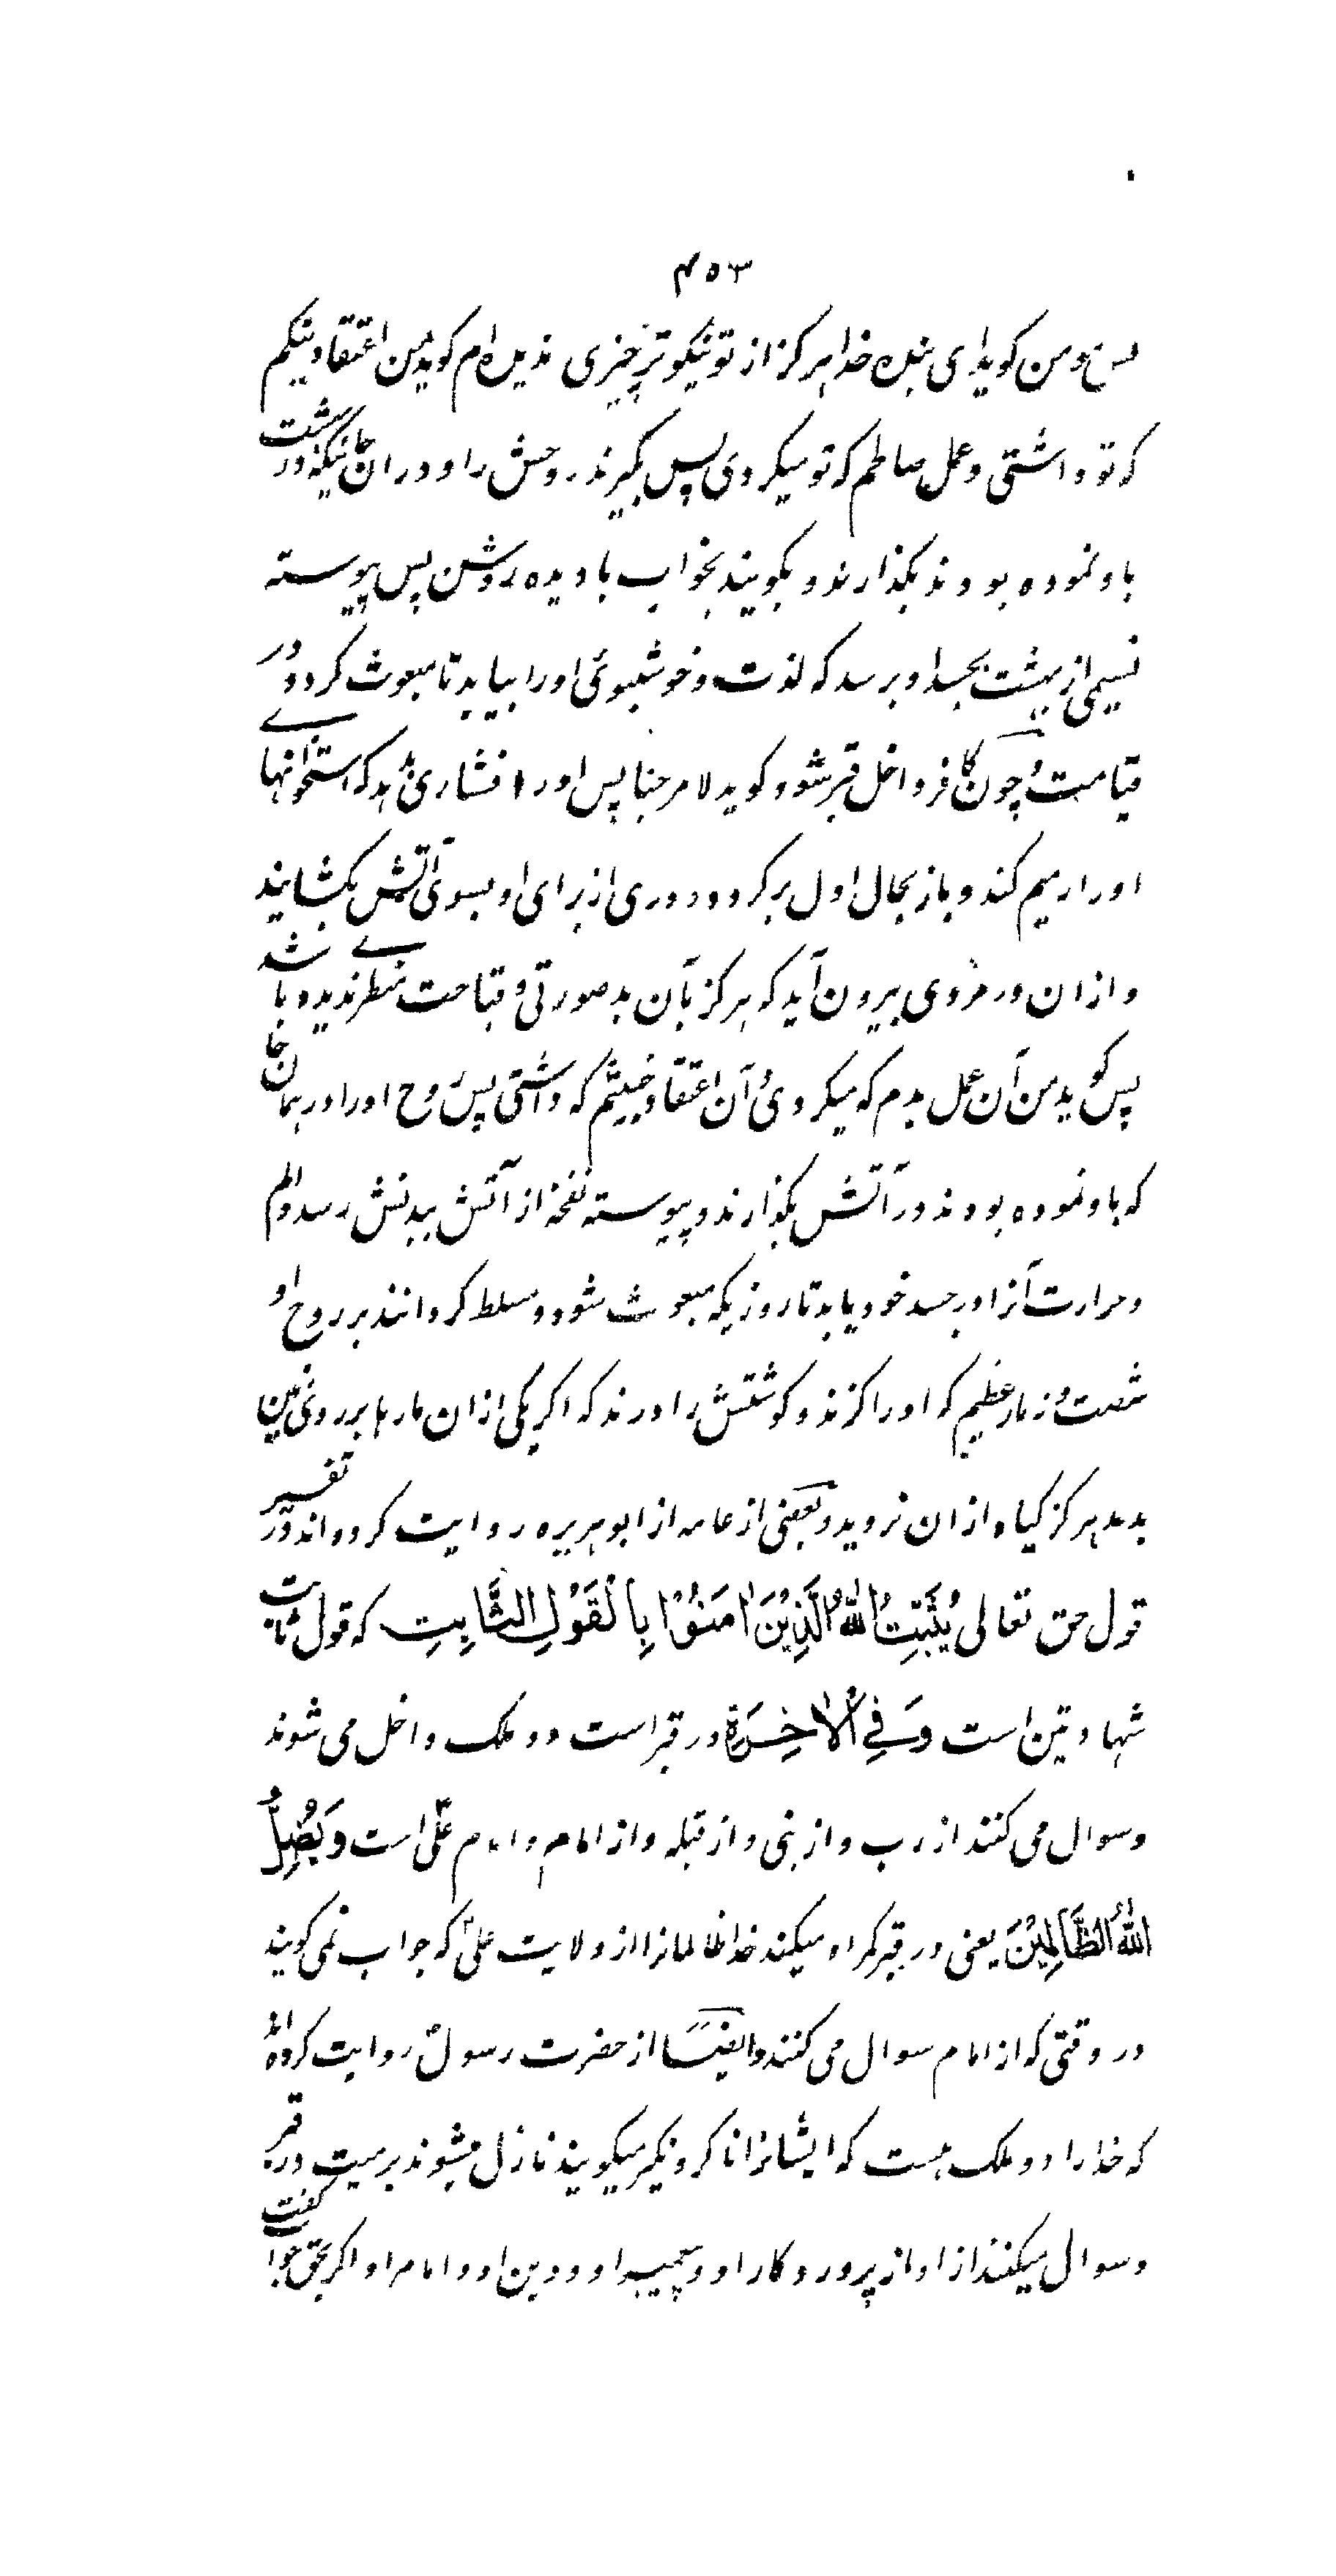 ۴۵۳
پس مومن کوید ای بنده خدا هرکز از تو نیکوتر چیزی ندیده ام کوید من اعتقاد نیکم
که تو داشتی و عمل صالحم که تو میکردی پس بکیرند روحش را و در ان جائیکه در بهشت
باو نموده بودند بکذارند و بکویند بخواب با دیده روشن پس پیوسته
نسیمی از بهشت بجسد او برسد که لذت و خوشبوئی او را بیابد تا مبعوث کردد در
قیامت و چون کافر داخل قبر شود کوید لا مرحبا پس او را فشاری دهد که استخوانهای
او را رمیم کند و باز بحال اول برکردد و دری از برای او بسوی آتش بکشایند
و از ان در مردی بیرون آید که هرکز بآن بد صورتی و قباحت منظری ندیده باشد
پس کوید من آن عمل بدم که میکردی و آن اعتقاد خبیثم که داشتی پس روح او را در همان جا
که باو نموده بودند در آتش بکذارند و پیوسته نفخه از آتش ببدنش رسد و الم
و حرارت آنرا در جسد خود یابد تا روزیکه مبعوث شود و مسلط کردانند بر روح او
شصت و نه مار عظیم که او را کزند و کوشتش را درند که اکر یکی ازان مارها بر روی زمین
بدمد هرکز کیاه ازان نروید و بعضی از عامه از ابوهریره روایت کرده اند در تفسیر
قول حق تعالی يُثَبِّتُ اللهُ الَّذِيْنَ اٰمَنُوْا بِالْقَوْلِ الثَّابِتِ که قول ثابت
شهادتین است وَفِي الْاٰخِرَةِ در قبر است دو ملک داخل می شوند
و سوال می کنند از رب و از نبی و از قبله و از امام و امام علی است وَيُضِلُّ
اللهُ الظَّالِمِيْنَ یعنی در قبر کمراه میکند خدا ظالمانرا از ولایت علی که جواب نمی کویند
در وقتی که از امام سوال می کنند و ایضًا از حضرت رسول روایت کرده اند
که خدا را دو ملک هست که ایشانرا ناکر و نکیر میکویند نازل میشوند بر میت در قبر
و سوال میکنند از او از پروردکار او و پیغمبر او و دین او و امام او اکر بحق جواب کفت